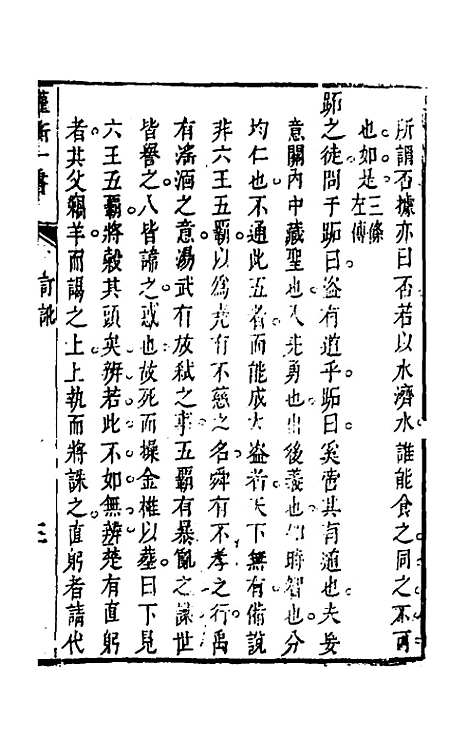 所謂否據亦曰否若以水濟水誰能食之同之不可
也如是三條左傳
跖之徒問于跖曰盜有道乎跖曰奚啻其有道也夫妄
意關內中藏聖也入先勇也出後義也知時智也分
均仁也不通此五者而能成大盜者天下無有備說
非六王五霸以為堯有不慈之名舜有不孝之行禹
有淫湎之意湯武有放弒之事五霸有暴亂之謀世
皆譽之人皆諱之惑也故死而操金椎以葬曰下見
六王五霸將𣪠其頭矣辨若此不如無辨楚有直躬
者其父竊羊而謁之上上執而將誅之直躬者請代
訂訛
三